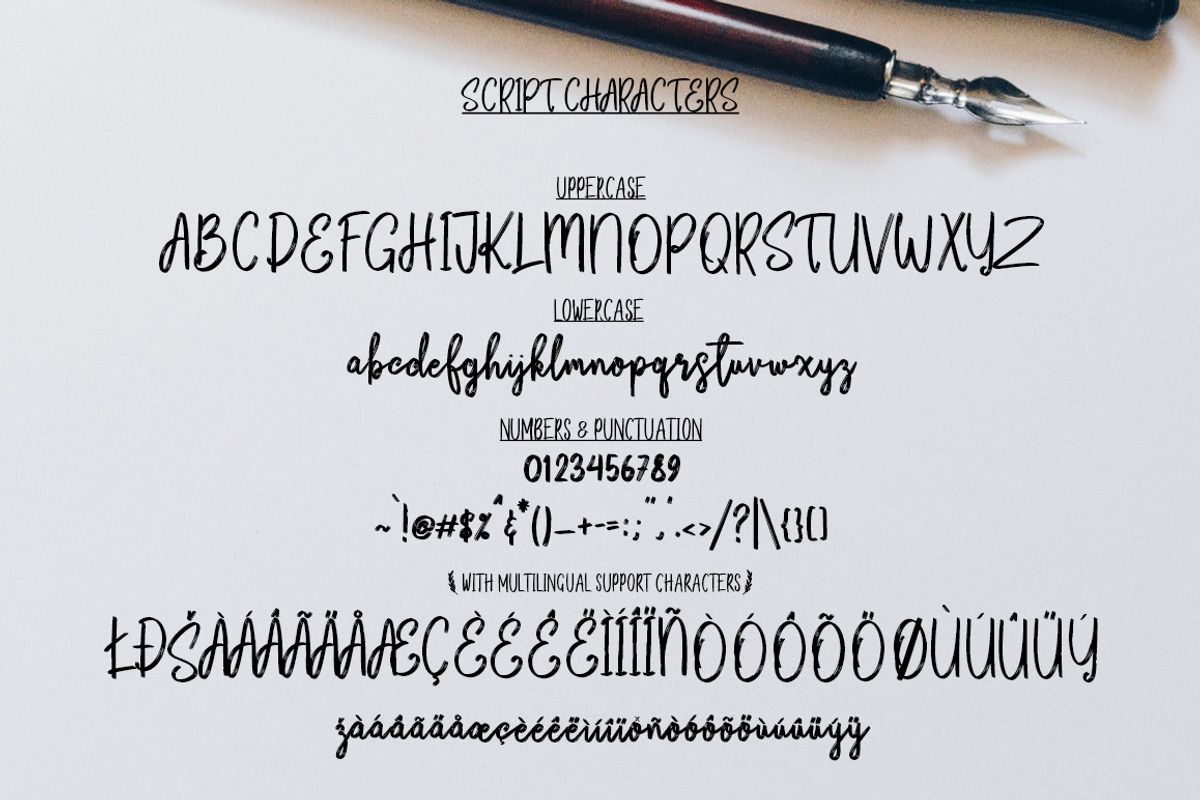 SCRIPT CHARACTERS
UPPERCASE
ABCDEFGHIJKLMNOPQRSTUVWXYZ
LOWERCASE
abcdefghijklmnopqrstuvwxyz
NUMBERS & PUNCTUATION
0123456789
~`!@#$%^&*()_+-=:;",'.<>/?|\{}[]
WITH MULTILINGUAL SUPPORT CHARACTERS
ŁĐŠÀÁÂÃÄÅÆÇÈÉÊËÌÍÎÏÑÒÓÔÕÖØÙÚÛÜÝ
žàáâãäåæçèéêëìíîïðñòóôõöùúûüýÿ